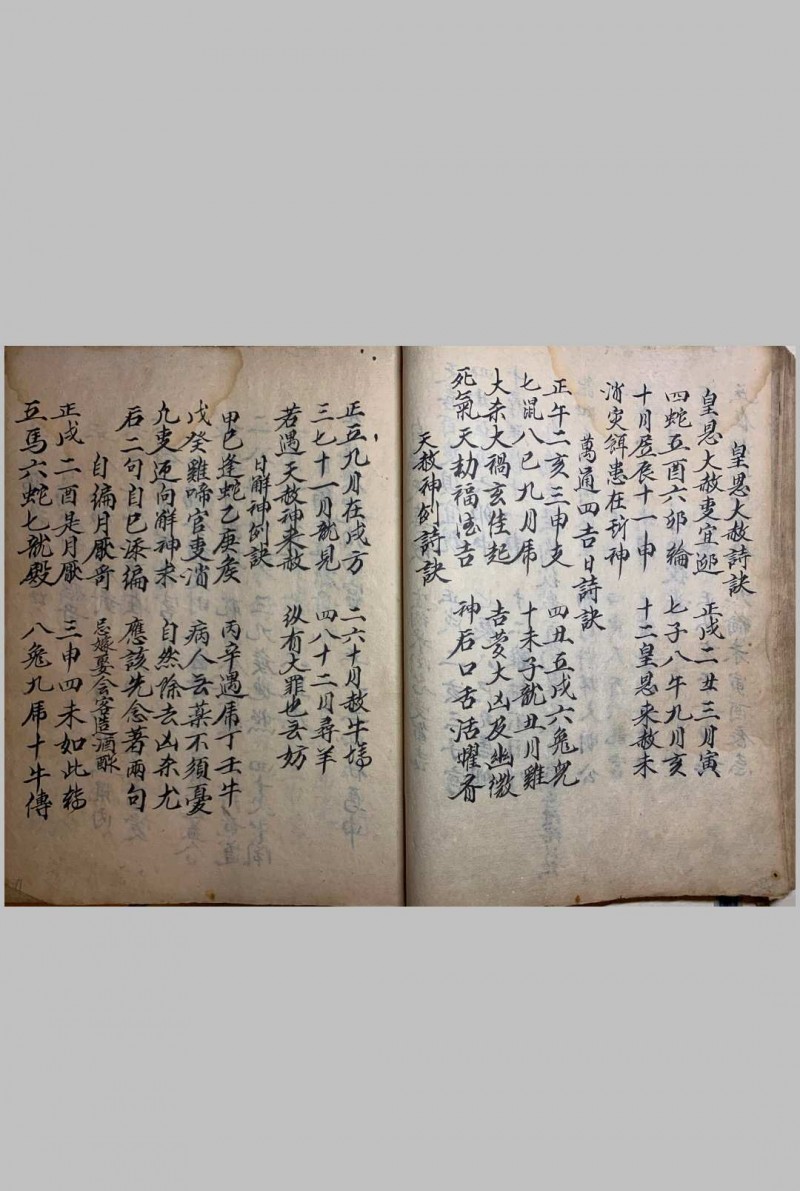 皇恩大赦詩訣
皇恩大赦吏宜 正戌二丑三月寅
四蛇五酉六卯 七子八午九月亥
十月居辰十一申 十二皇恩来赦未
消灾 患在 神
萬通四吉日詩訣
正午二亥三申支 四丑五戌六兔
七鼠八巳九月乕 十未子龍丑月雞
大杀大禍玄 起 吉 大凶及幽微
死氣天劫福 吉 神后口舌活曜
天赦神例詩訣
正五九月在戌方 二六十月赦牛
三七十一月龍見 四八十二月尋羊
若遇天赦神来赦 纵有大罪也妨
日解神例訣
甲巳逢蛇乙庚 丙辛遇乕丁壬牛
戊癸雞啼官吏消 病人 藥不須憂
九吏迎向解神未 自然除去凶杀尤
后二句自巳添編 應該先念著兩句
自編月厭
忌嫁娶会客造酒
正戌二酉是月厭 三申四未如此
五馬六蛇七龍殿 八兔九乕十牛傳